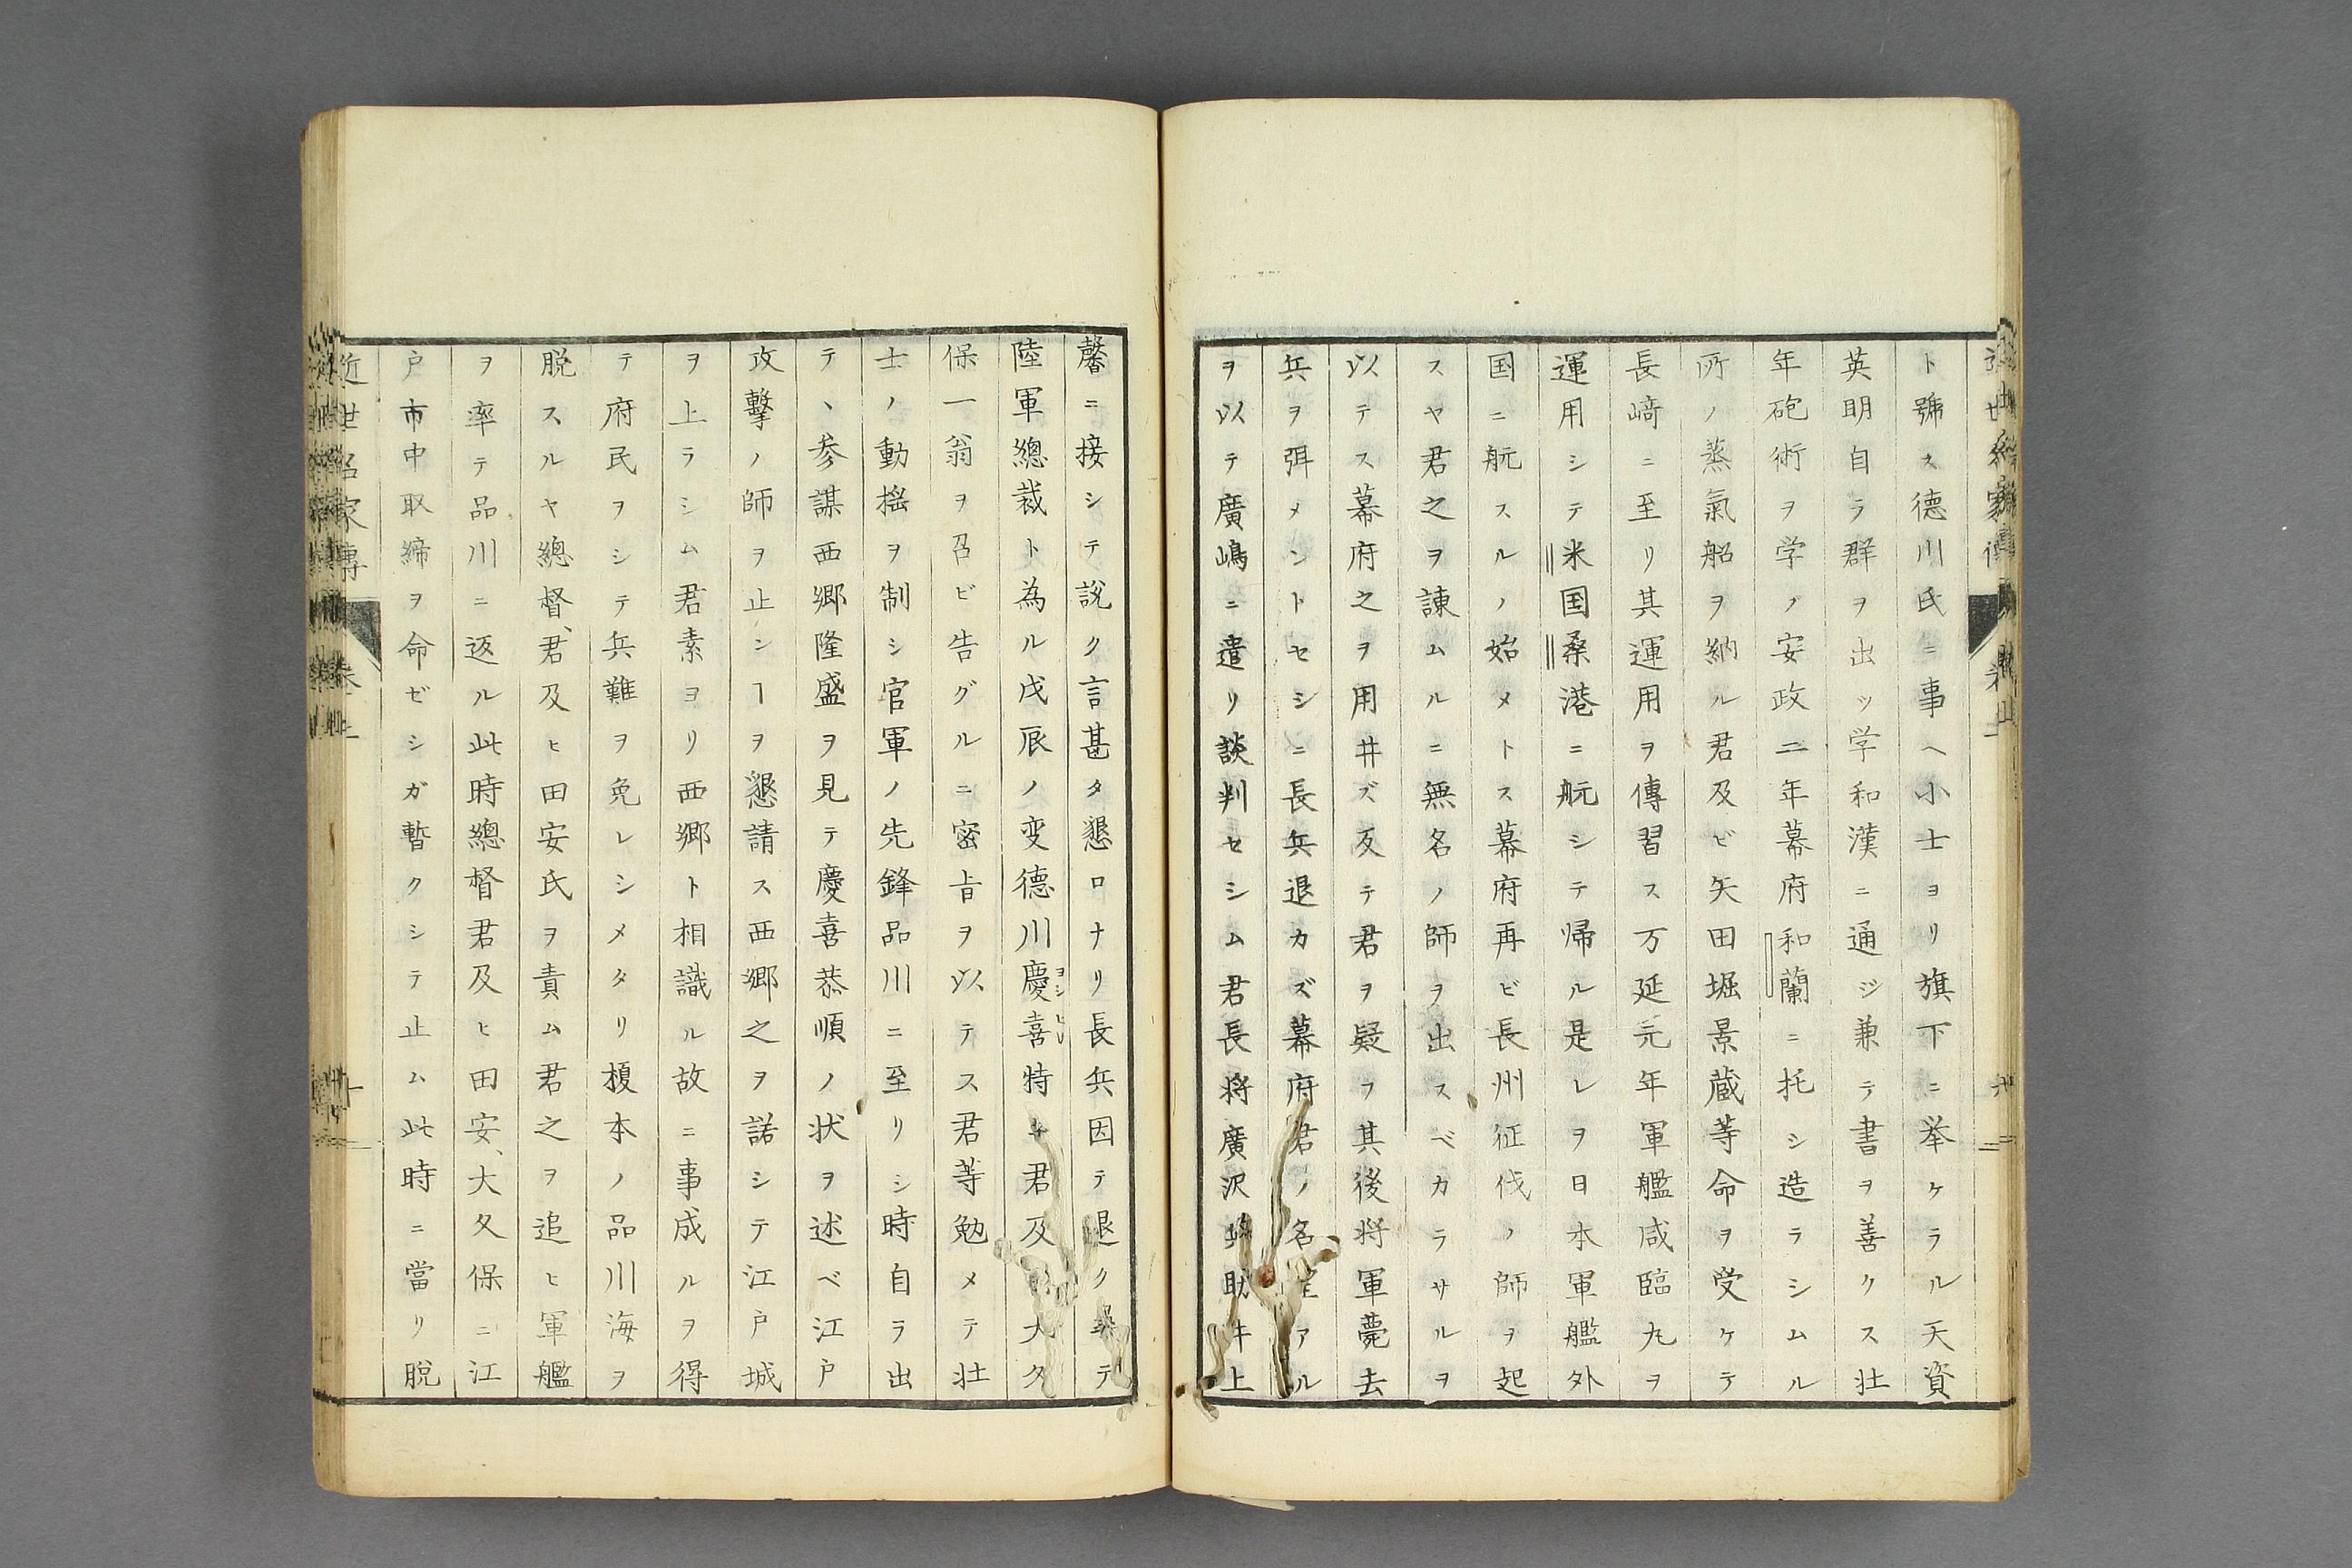 ト號ス德川氏ニ事ヘ小士ヨリ旗下ニ挙ケラル天資
英明自ラ群ヲ出ッ学和漢ニ通ジ兼テ書ヲ善クス壮
年砲術ヲ学ノ安政二年幕府和蘭ニ托シ造ラシムル
所ノ蒸氣船ヲ納ル君及ビ矢田堀景蔵等命ヲ受ケテ
長﨑ニ至リ其運用ヲ傳習ス万延元年軍艦咸臨丸ヲ
運用シテ米国桑港ニ航シテ帰ル是レヲ日本軍艦外
国ニ航スルノ始メトス幕府再ビ長州征伐ノ師ヲ起
スヤ君之ヲ諌ムルニ無名ノ師ヲ出スベカラサルヲ
以テス幕府之ヲ用井ズ反テ君ヲ疑フ其後将軍薨去
兵ヲ弭メントセシニ長兵退カズ幕府君ノ名望アル
ヲ以テ廣嶋ニ遣リ談判セシム君長将廣沢助井上
馨ニ接シテ說ク言甚タ懇ロナリ長兵因テ退クテ
陸軍總裁ト為ル戊辰ノ変德川慶喜特ニ君及大久
ヨシヒサ
保一翁ヲ召ビ告グルニ密旨ヲ以テス君等勉メテ壮
士ノ動揺ヲ制シ官軍ノ先鋒品川ニ至リシ時自ラ出
テヽ参謀西郷隆盛ヲ見テ慶喜恭順ノ状ヲ述ベ江戸
攻擊ノ師ヲ止ンヿヲ懇請ス西郷之ヲ諾シテ江戸城
ヲ上ラシム君素ヨリ西郷ト相識ル故ニ事成ルヲ得
テ府民ヲシテ兵難ヲ免レシメタリ榎本ノ品川海ヲ
脱スルヤ總督、君及ヒ田安氏ヲ責ム君之ヲ追ヒ軍艦
ヲ率テ品川ニ返ル此時總督君及ヒ田安、大久保ニ江
戸市中取締ヲ命ゼシガ暫クシテ止ム此時ニ當リ脱
近世名家傳 卷上